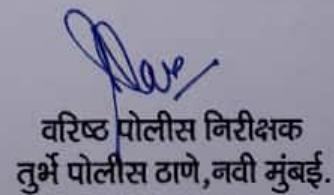 वरिष्ठ पोलीस निरीक्षक
तुर्भे पोलीस ठाणे,नवी मुंबई.